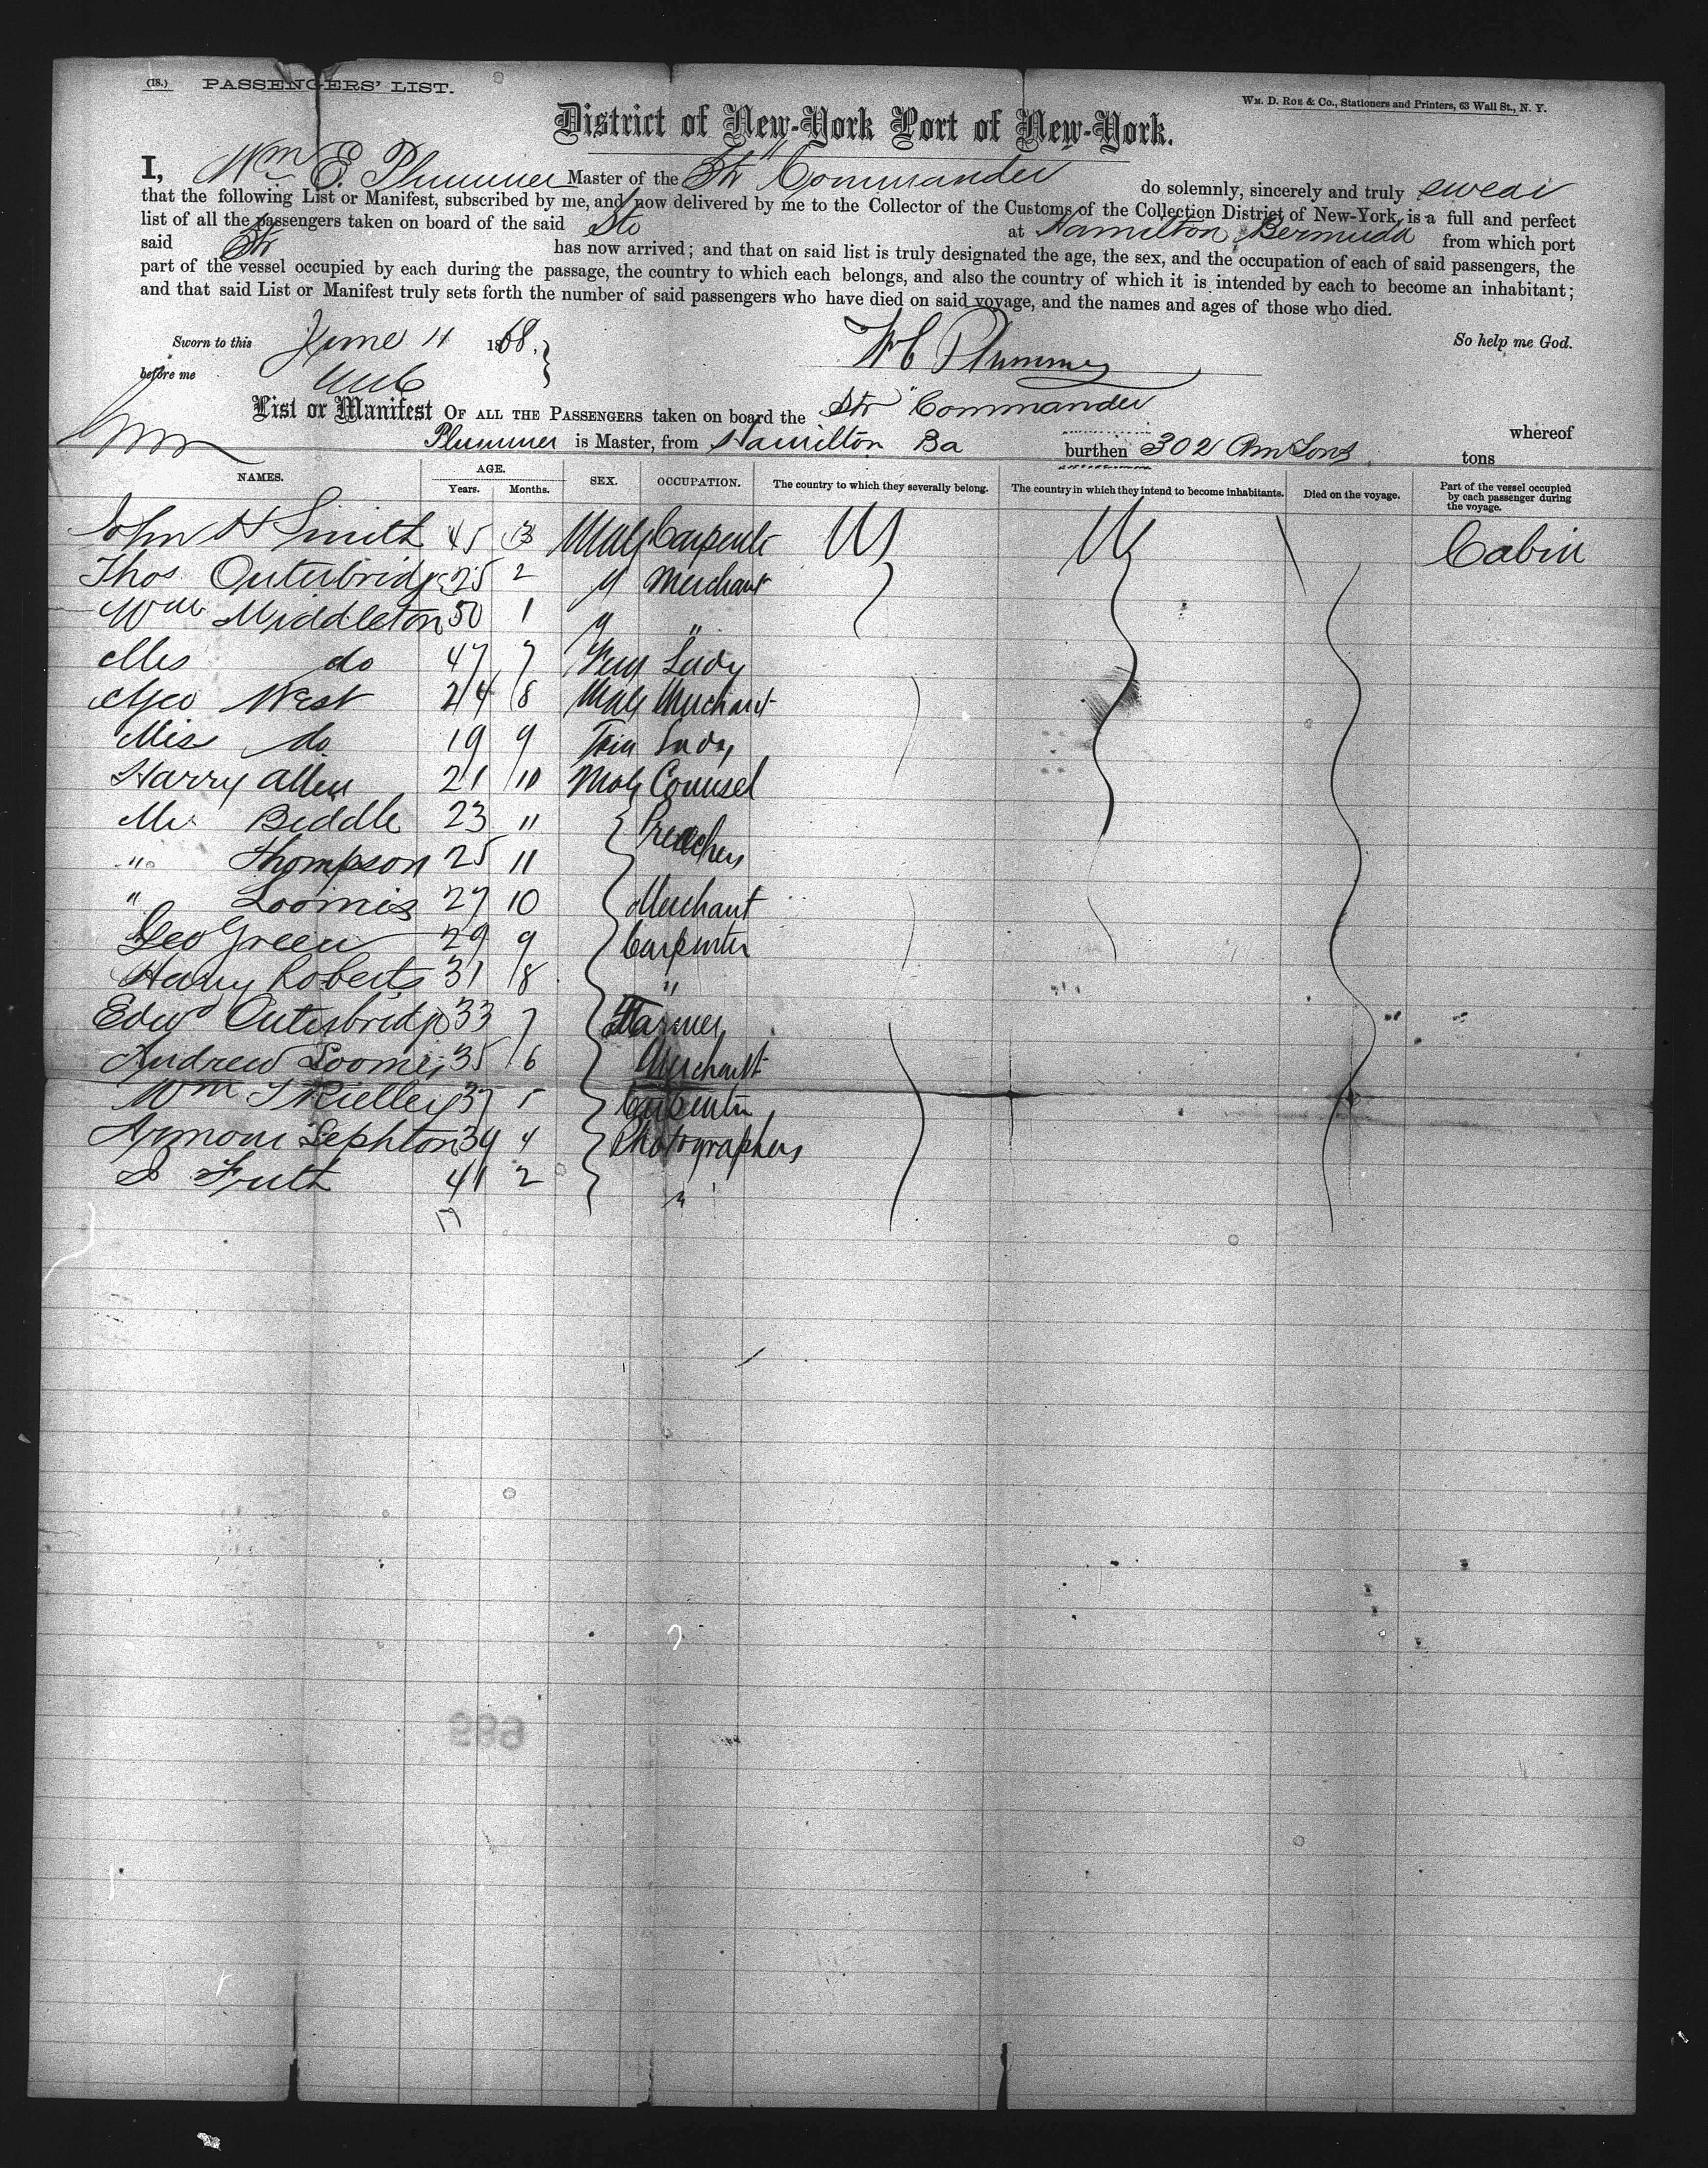 (18.) PASSENGERS' LIST.
WM. D. ROE & CO., Stationers and Printers, 63 Wall St., N. Y.
District of New-York Port of New-York.
I, Wm E. Plummer Master of the Str "Commander do solemnly, sincerely and truly swear
that the following List or Manifest, subscribed by me, and now delivered by me to the Collector of the Customs of the Collection District of New-York, is a full and perfect
list of all the passengers taken on board of the said Str at Hamilton, Bermuda from which port
said Str has now arrived; and that on said list is truly designated the age, the sex, and the occupation of each of said passengers, the
part of the vessel occupied by each during the passage, the country to which each belongs, and also the country of which it is intended by each to become an inhabitant;
and that said List or Manifest truly sets forth the number of said passengers who have died on said voyage, and the names and ages of those who died.
Sworn to this June 4 1868. So help me God.
before me W E Plummer
List or Manifest OF ALL THE PASSENGERS taken on board the Str "Commander whereof
Plummer is Master, from Hamilton Ba burthen 302 tons
NAMES. AGE. Years. Months. SEX. OCCUPATION. The country to which they severally belong. The country in which they intend to become inhabitants. Died on the voyage. Part of the vessel occupied by each passenger during the voyage.
John H Smith 45 3 Male Carpenter Cabin
Thos Outerbridge 25 2 " Merchant
Wm Middleton 50 1 " "
Mrs do 47 7 Fem Lady
Geo West 24 8 Male Merchant
Mis do 19 9 Fem Lady
Harry Allen 21 10 Male Counsel
Mr Beddle 23 " Preachers
" Thompson 25 11
" Loomis 27 10 Merchant
Geo Green 29 9 Carpenter
Harry Roberts 31 8 "
Edwd Outerbridge 33 7 Farmer
Andrew Loomis 35 6 Merchant
Wm J Rielley 37 5 Carpenter
Sephton 39 4 Photographers
41 2 "
17